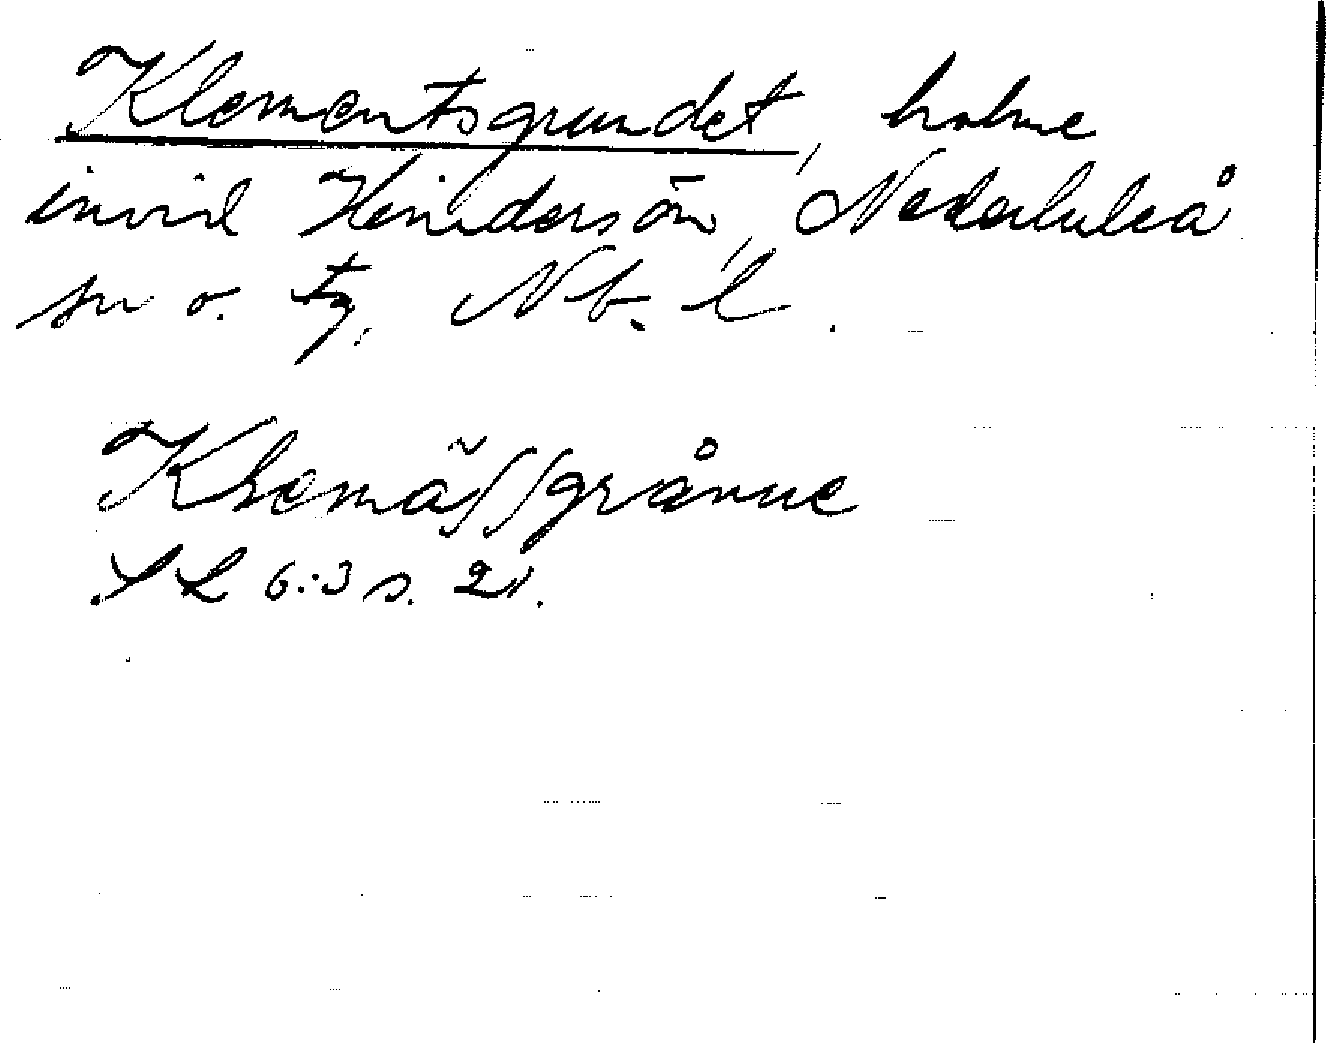 Klementsgrundet, holme
invid Hindersön, Nederluleå
sn o. tg, Nb. l.
Klemässgrånne
SL 6:3 s. 21.